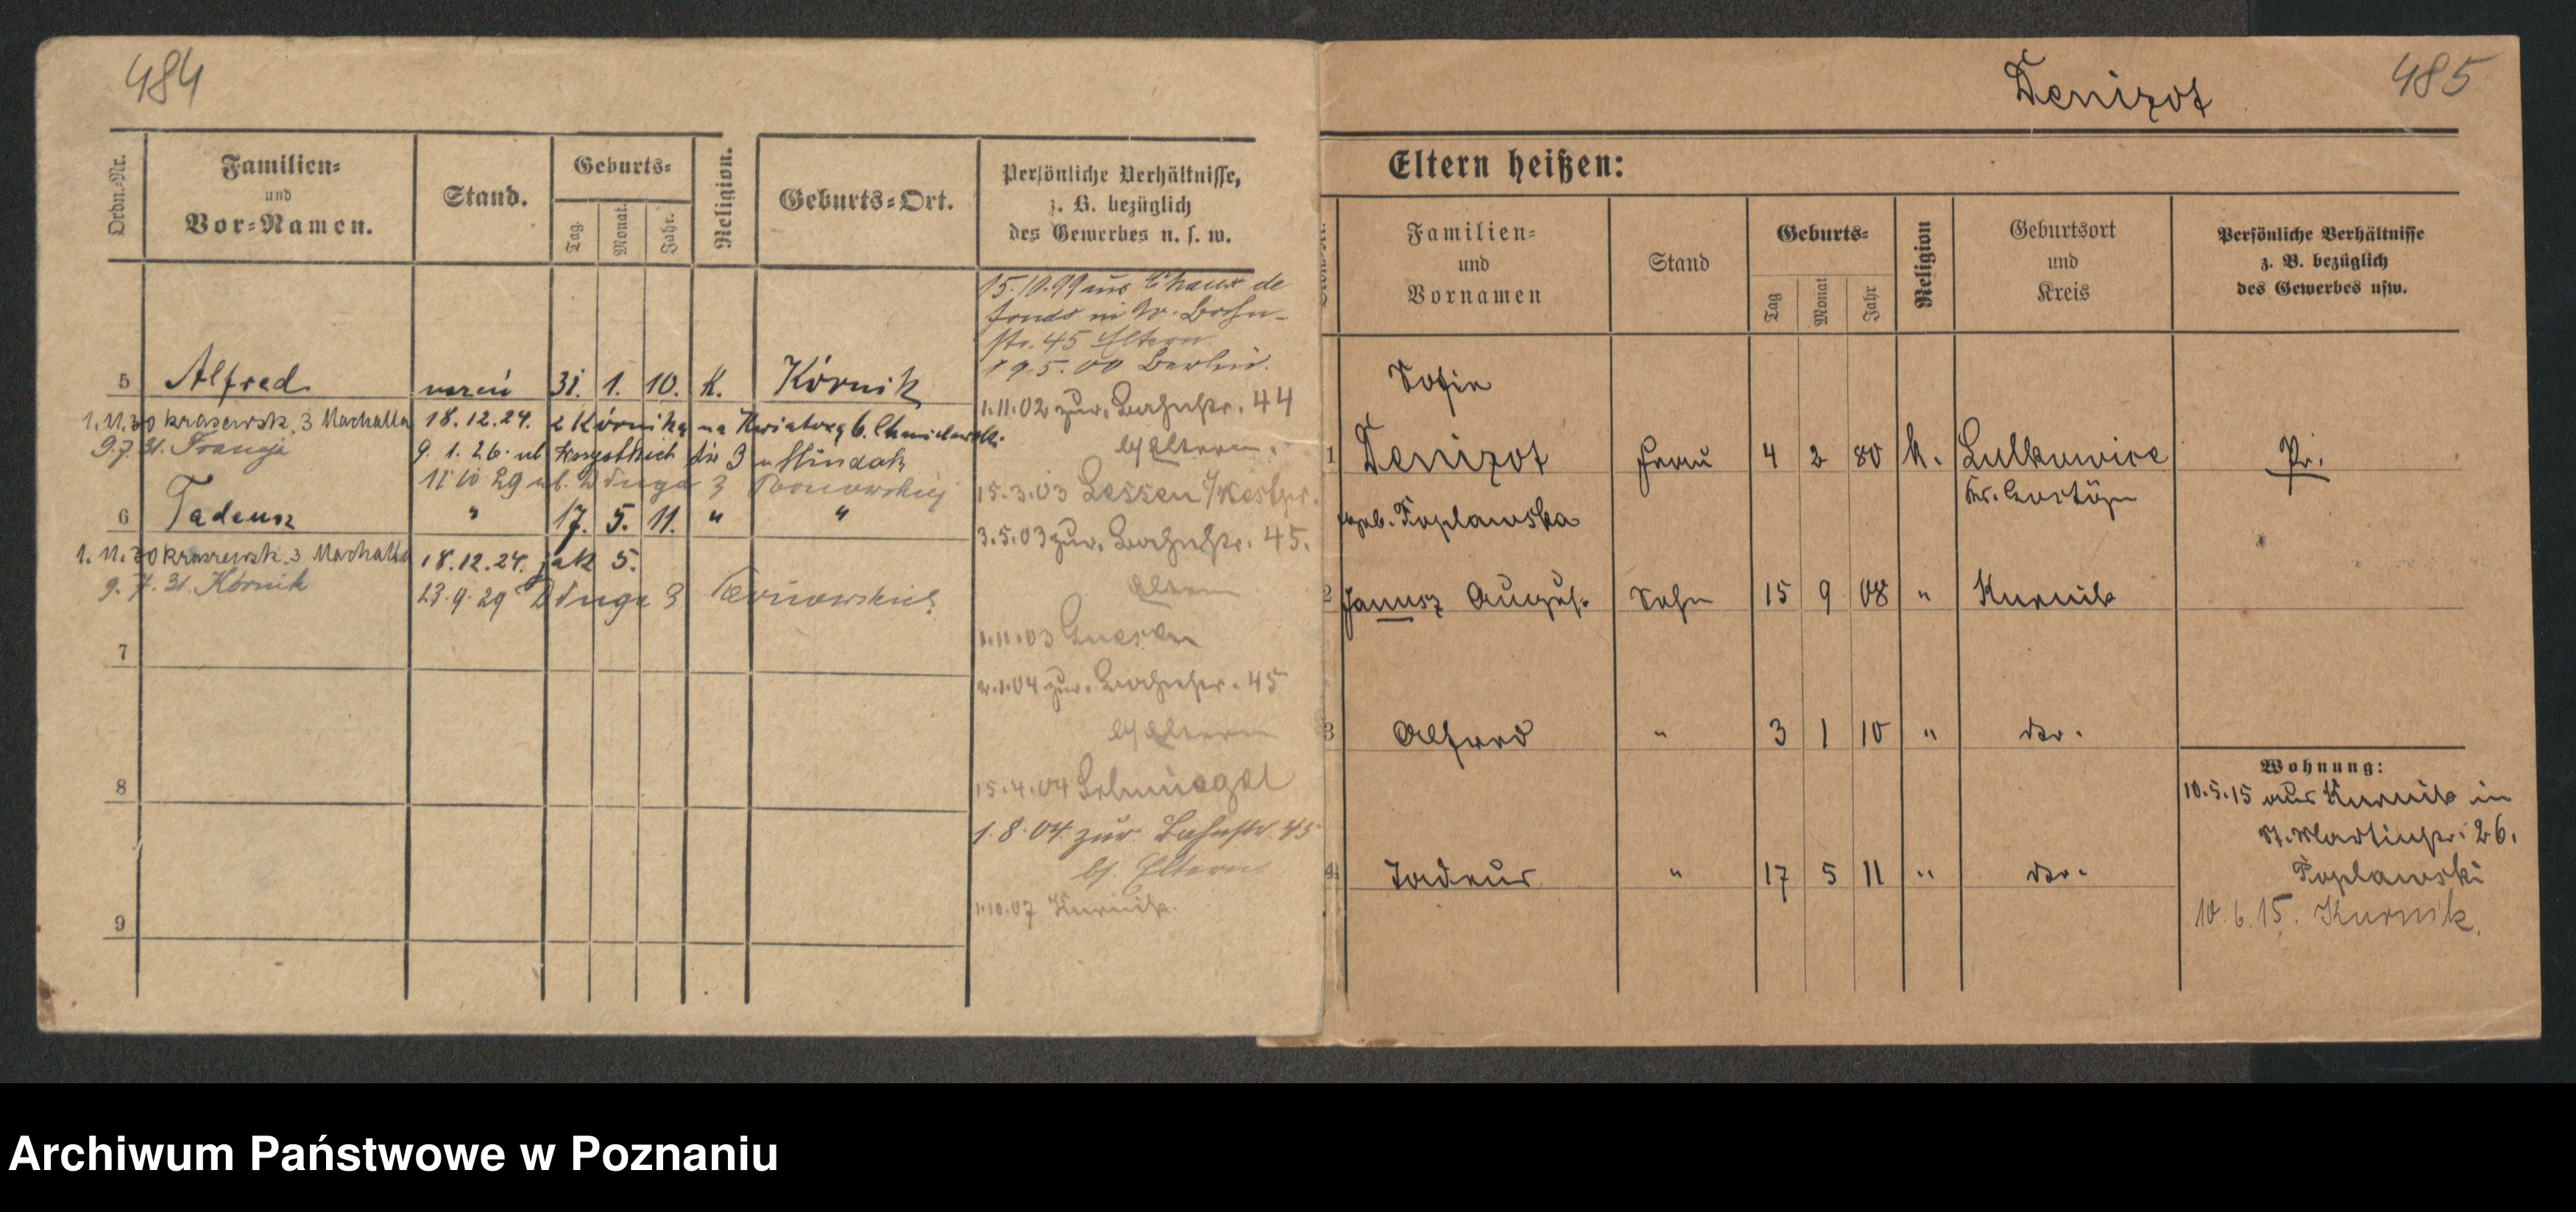 484
Ordn.-Nr.
Familien-
und
Vor-Namen.
Stand.
Geburts-
Tag.
Monat.
Jahr.
Religion.
Geburts-Ort.
Persönliche Verhältnisse,
z. B. bezüglich
des Gewerbes u. s. w.
15.10.99 aus Chaux de
fonds in W. Bahn-
str. 45 Eltern
19.5.00 Berlin.
5 Alfred uczeń 31. 1. 10. K. Kórnik
1.11.02 zur. Bahnstr. 44
b/ Eltern.
1.11.30 Krasewsk. 3 Machalla 18.12.24. z Kórnika na
9.7.31. Francja 9. 1. 26. ul. Wszystkich Św 3
11 10 29 ul. Długa 3
15.3.03 Lessen
6 Tadeusz " 17. 5. 11. " "
3.5.03 zur. Bahnstr. 45.
Eltern
1.11.30 Kraszewsk. 3 Machalla 18.12.24. jak 5.
9. 7. 31. Kórnik 23.9.29 Długa 3
1.11.03 Gnesen
7
2.1.04 zur. Bahnstr. 45
b/ Eltern
15.4.04 Schmiegel
8
1.8.04. zur. Bahnstr. 45
b/. Eltern
1.10.07 Kurnik.
9
Denizot
485
Eltern heißen:
Familien-
und
Vornamen
Stand
Geburts-
Tag
Monat
Jahr
Religion
Geburtsort
und
Kreis
Persönliche Verhältnisse
z. B. bezüglich
des Gewerbes usw.
Sofie
1 Denizot Frau 4 2 80 k. Lulkowice Pr.
geb. Poplawska
2 Janusz August Sohn 15 9 08 " Kurnik
3 Alfred " 3 1 10 " do.
Wohnung:
10.5.15 aus Kurnik in
St. Martinstr. 26.
Poplawski
4 Tadeus " 17 5 11 " do.
10.6.15. Kurnik.
Archiwum Państwowe w Poznaniu